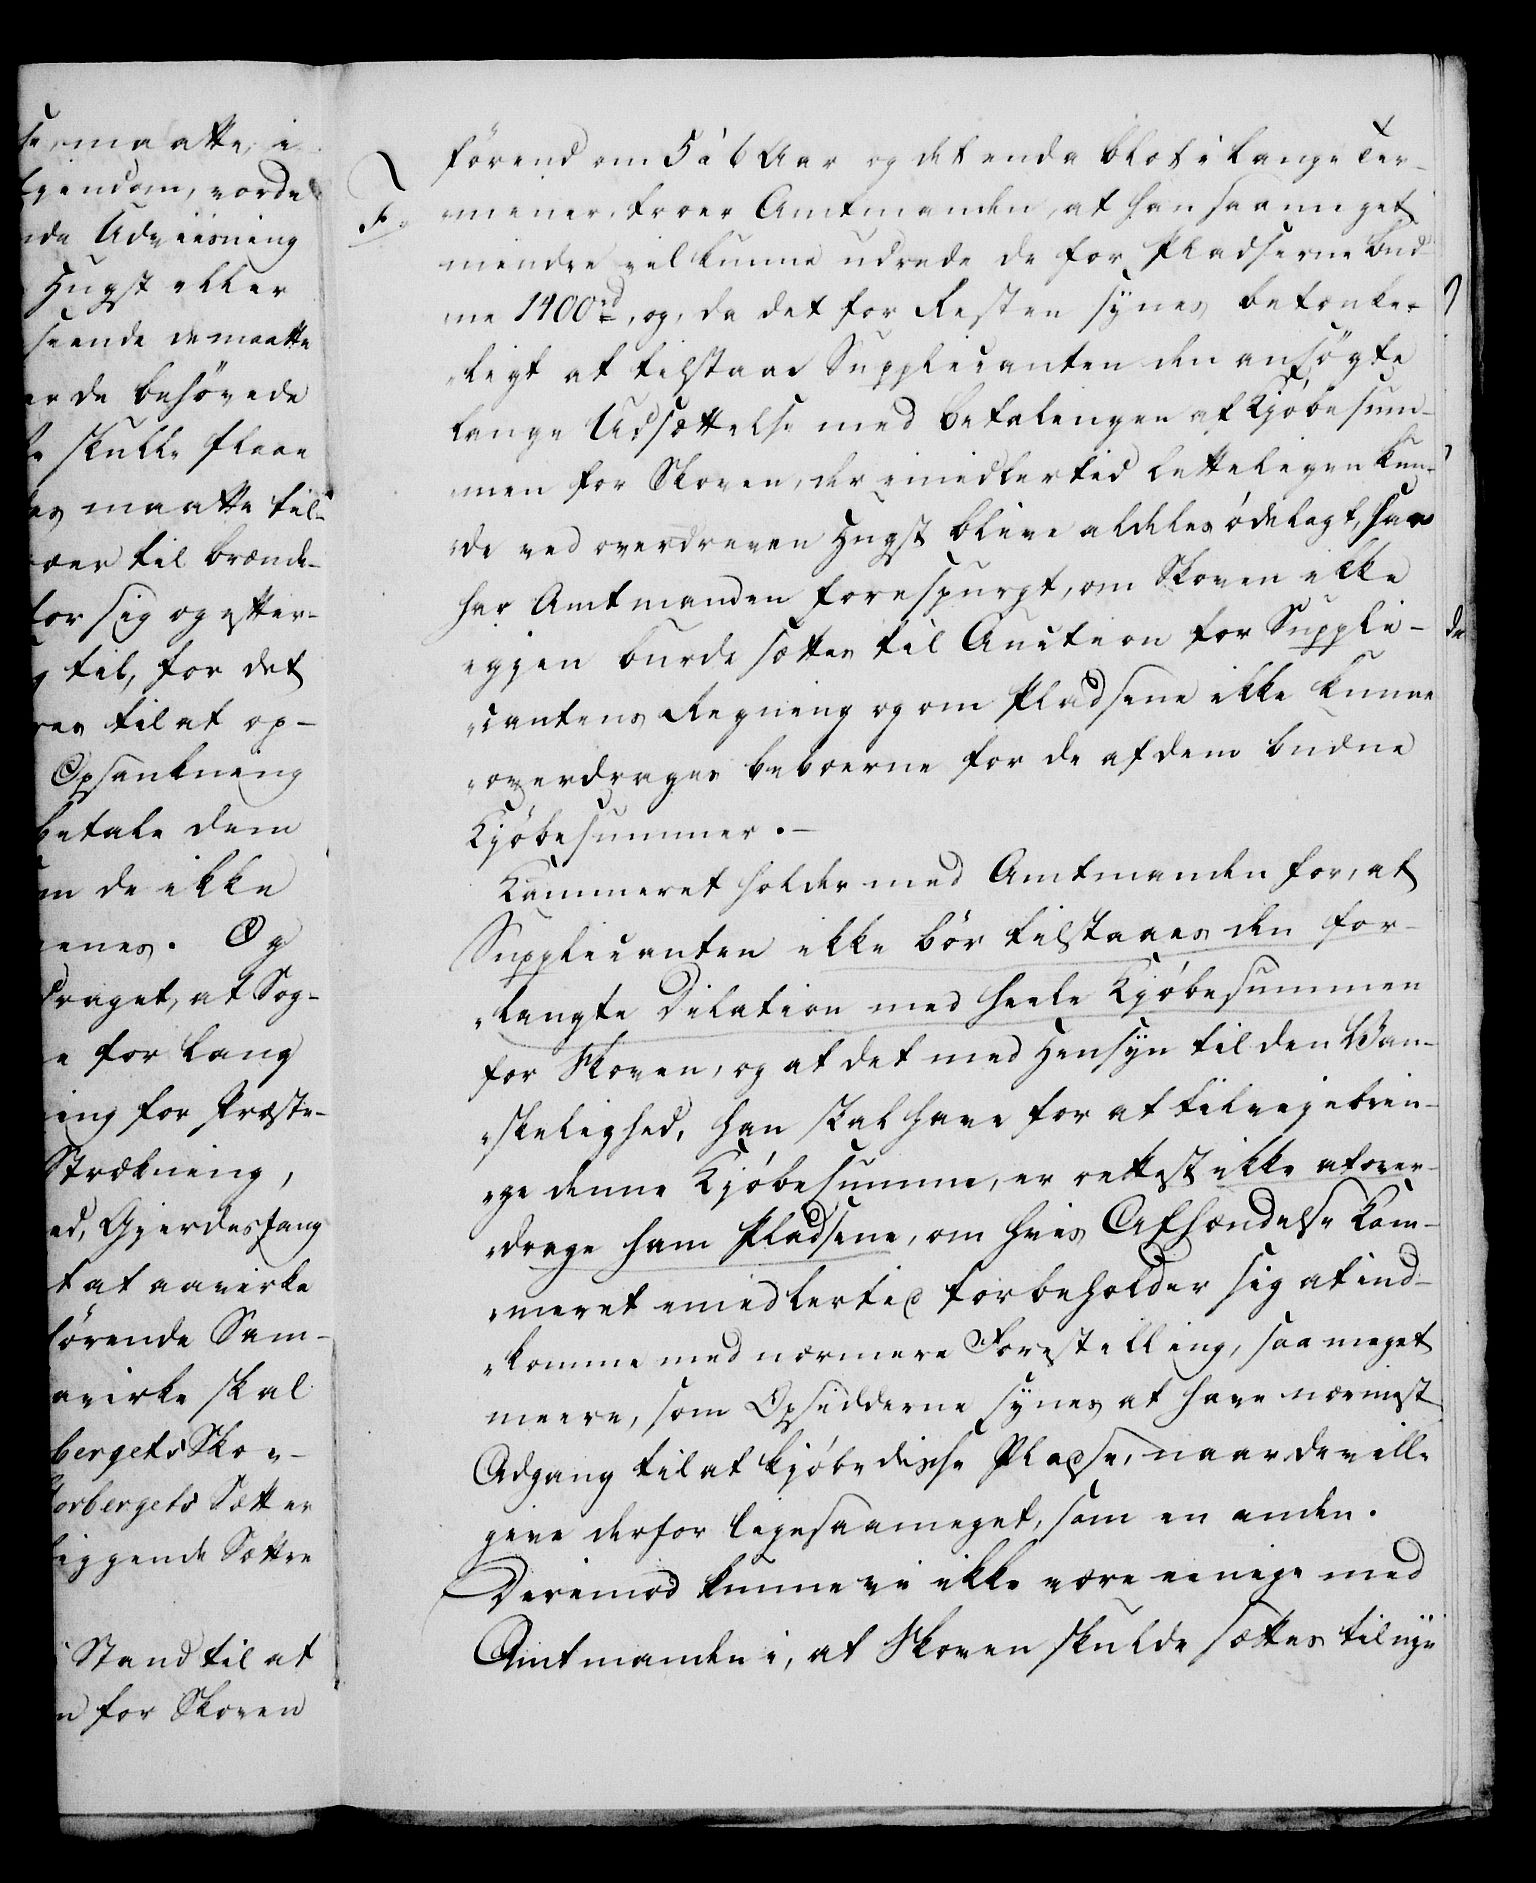 se, maatte, i
Ejendom, vorde
nde Udviisning
Hugst eller
seende de maatte
er de behövede
skulle flaae
es maatte til-
oer til brænde-
for sig og efter-
g til, for det
res til at op-
Opsankning
betale dem
m de ikke
enes. Og
draget, at Sog-
e for lang
ing for Præste-
Strækning,
ed, Gjerdesfang
t at aavirke
hörende Sam-
avirke skal
bergets Skov-
orbergets Sætter
liggende Sættre
Stand til at
n for Skoven
förend om 5 à 6 Aar og det enda blot i lange Ter-
miner, troer Amtmanden, at han saameget
mindre vil kunne udrede de for Pladserne bud-
ne 1400 rd, og, da det for Resten synes betænke-
ligt at tilstaae Supplicanten den ansögte
lange Udsættelse med Betalingen af Kjöbesum-
men for Skoven, der imidlertid letteligen kun-
de ved overdreven Hugst blive aldeles ödelagt, saa
har Amtmanden forespurgt, om Skoven ikke
igjen burde sættes til Auction for Suppli-
cantens Regning og om Pladsene ikke kunne
overdrages beboerne for de af dem budne
Kjöbesummer. -
Kammeret holder med Amtmanden for, at
Supplicanten ikke bör tilstaaes den for-
langte Dilation med heele Kjöbesummen
for Skoven, og at det med Hensyn til den Van-
skelighed, han skal have for at tilvejebrin-
ge denne Kjöbesumme, er rettest ikke at over-
drage ham Pladsene, om hvis Afhændelse Kam-
meret imidlertid forbeholder sig at ind-
komme med nærmere Forestilling, saa meget
meere, som Opsidderne synes at have nærmest
Adgang til at kjöbe disse Pladse, naar de ville
give derfor ligesaameget, som en anden.
Derimod kunne vi ikke være eenige med
Amtmanden i, at Skoven skulde sættes til nye